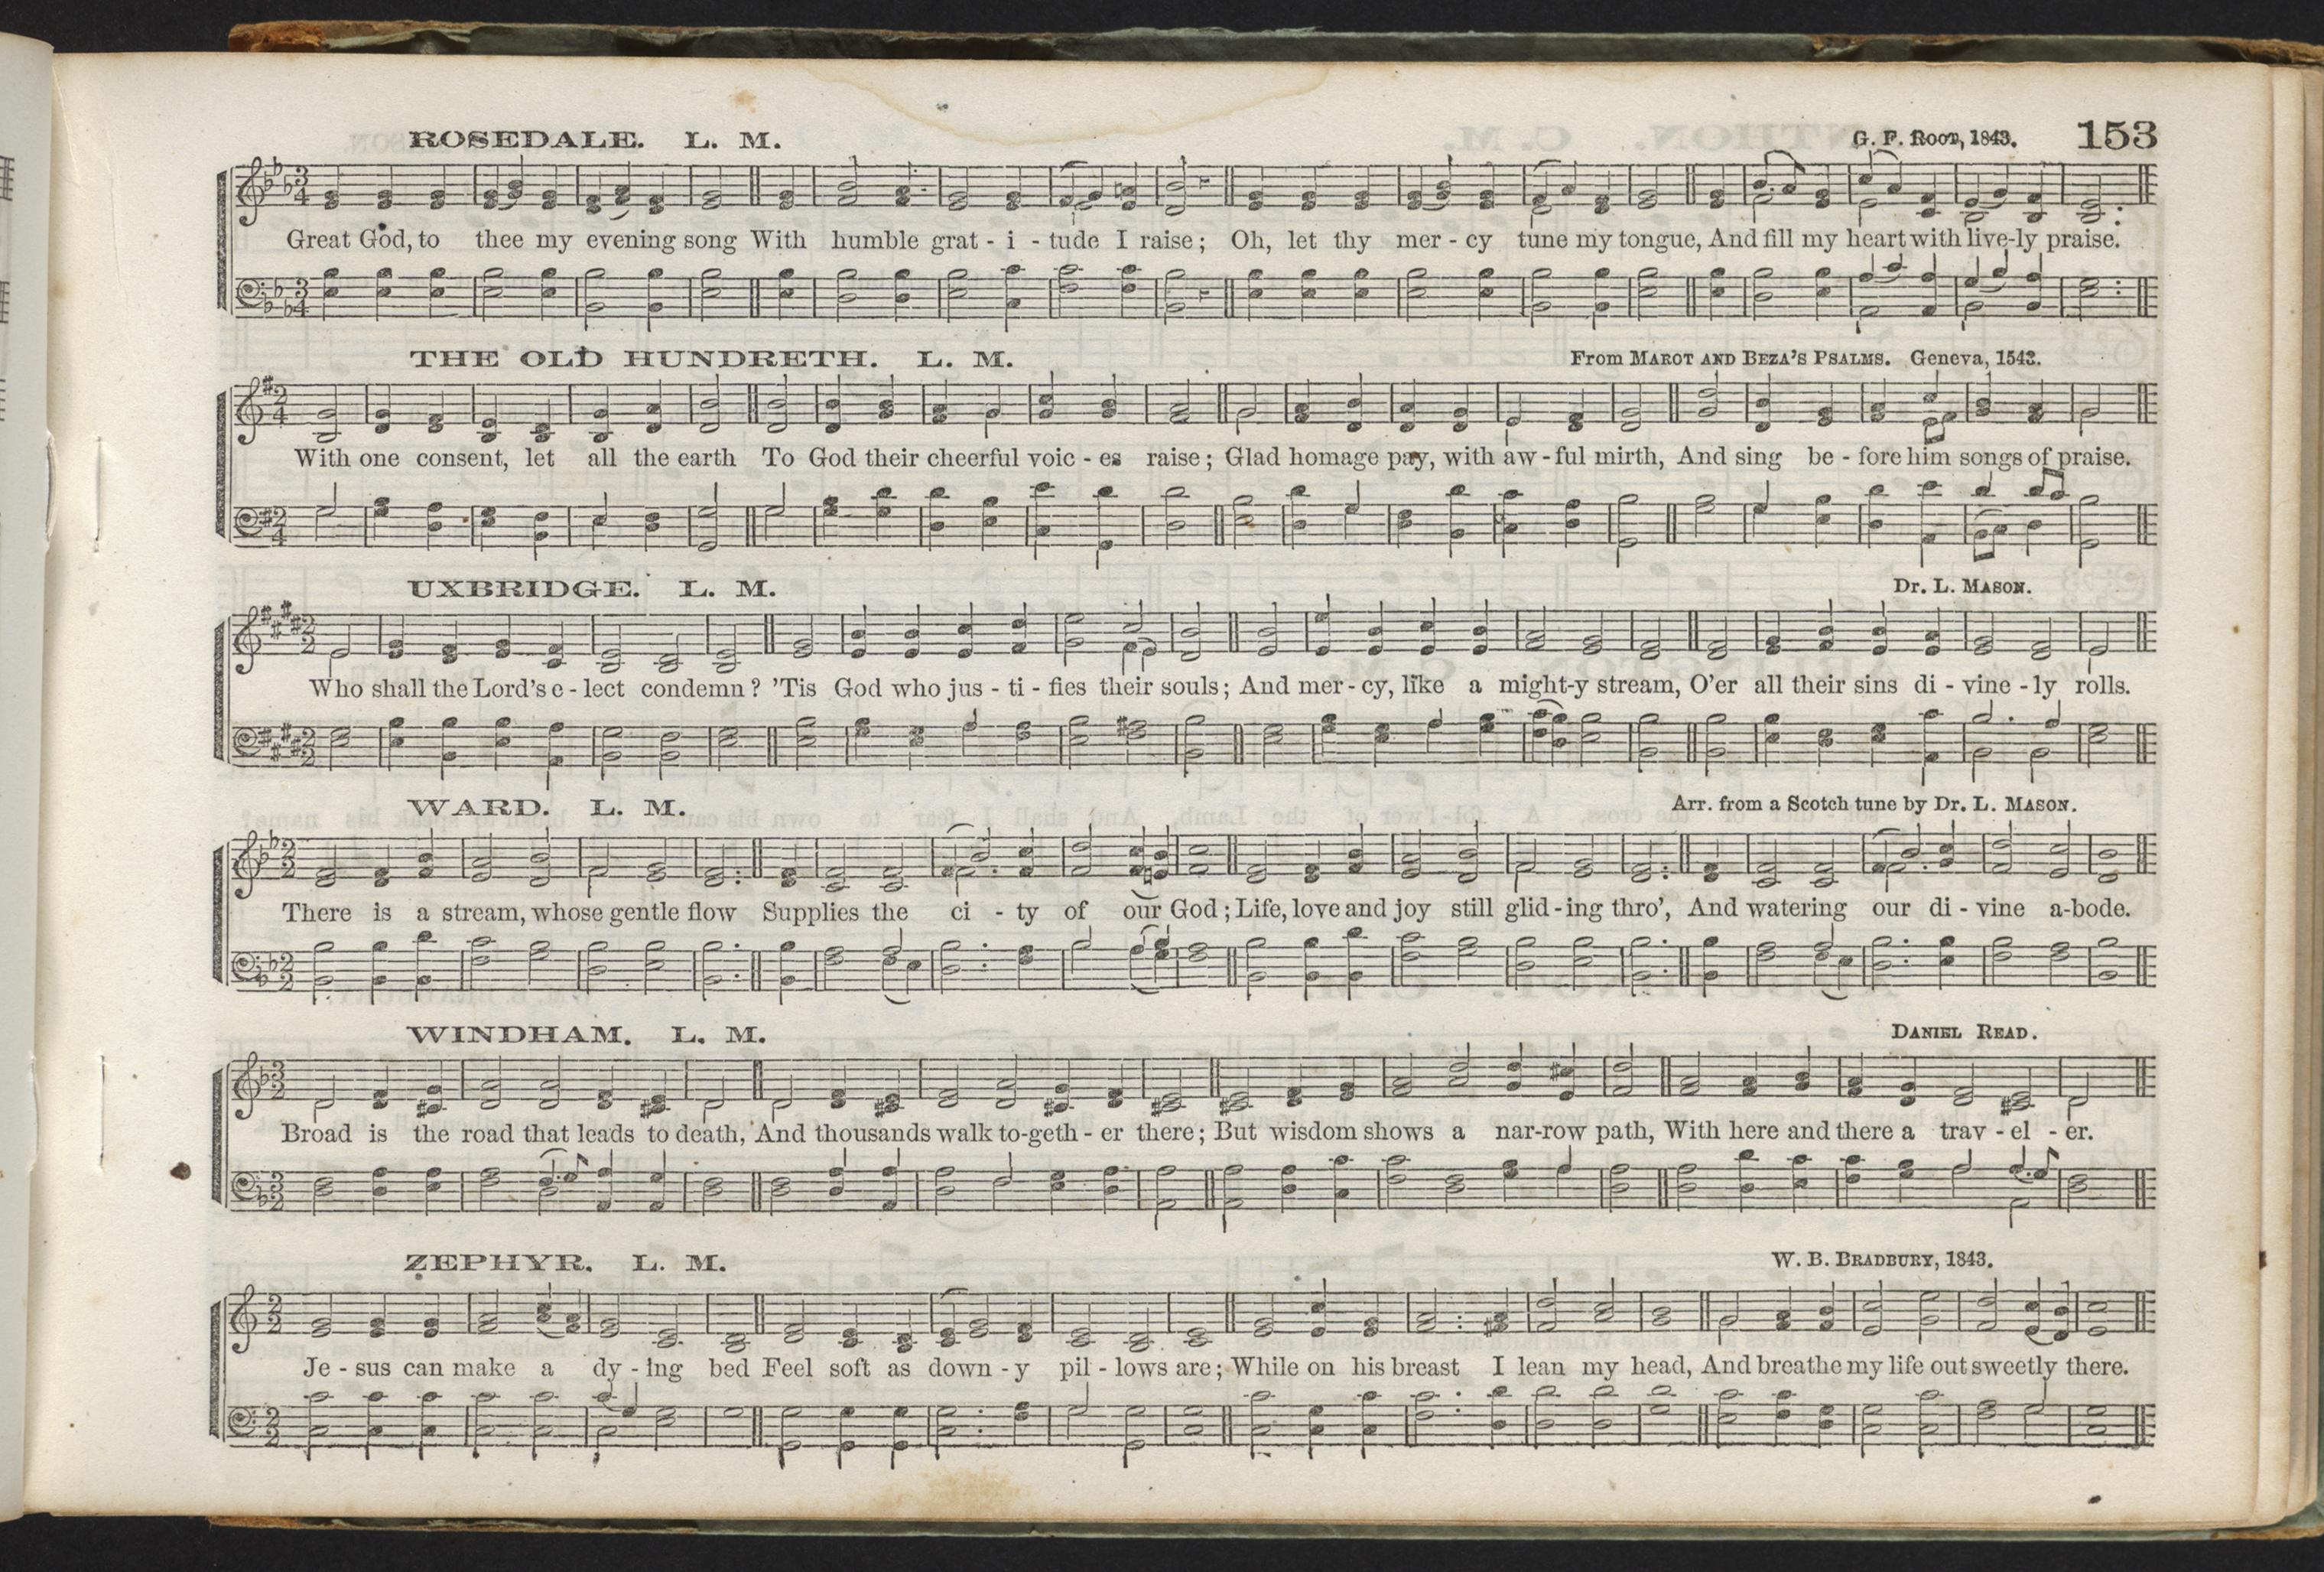 ROSEDALE. L. M. G. F. Root, 1843. 153
Great God, to thee my evening song With humble grat - i - tude I raise; Oh, let thy mer - cy tune my tongue, And fill my heart with live-ly praise.
THE OLD HUNDRETH. L. M. From Marot and Beza's Psalms. Geneva, 1543.
With one consent, let all the earth To God their cheerful voic - es raise; Glad homage pay, with aw - ful mirth, And sing be - fore him songs of praise.
UXBRIDGE. L. M. Dr. L. Mason.
Who shall the Lord's e - lect condemn? 'Tis God who jus - ti - fies their souls; And mer - cy, like a might-y stream, O'er all their sins di - vine - ly rolls.
WARD. L. M. Arr. from a Scotch tune by Dr. L. Mason.
There is a stream, whose gentle flow Supplies the ci - ty of our God; Life, love and joy still glid - ing thro', And watering our di - vine a-bode.
WINDHAM. L. M. Daniel Read.
Broad is the road that leads to death, And thousands walk to-geth - er there; But wisdom shows a nar-row path, With here and there a trav - el - er.
ZEPHYR. L. M. W. B. Bradbury, 1843.
Je - sus can make a dy - ing bed Feel soft as down - y pil - lows are; While on his breast I lean my head, And breathe my life out sweetly there.